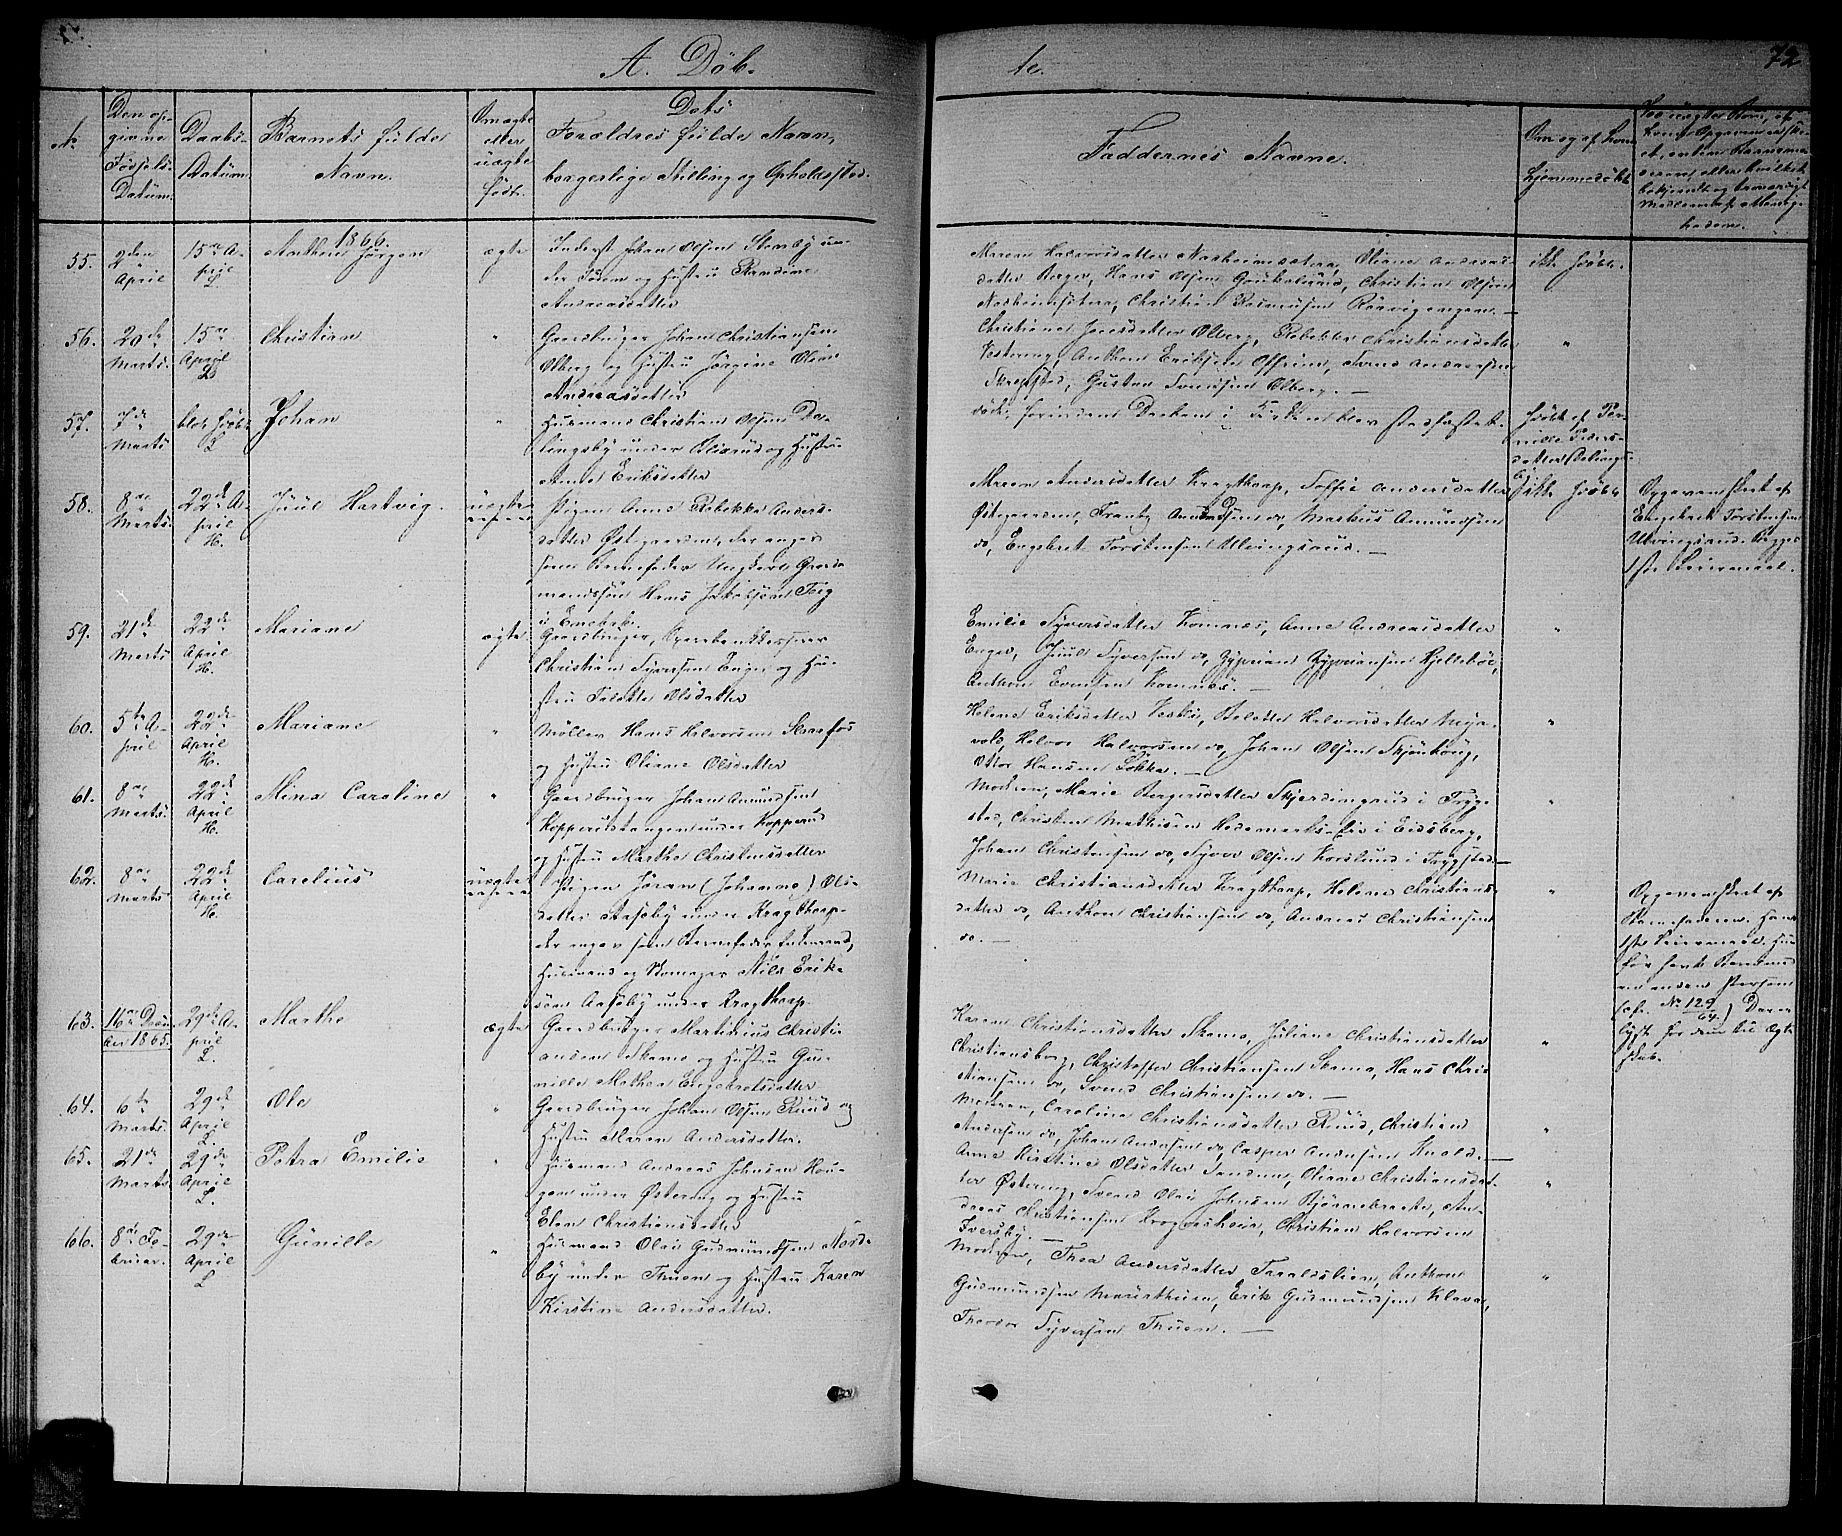 A. Döb-
te.
72
No
Den op-
givne
Fødsels-
Datum.
Daabs-
Datum.
Barnets fulde
Navn.
Om ægte
eller
uægte
født.
Dets
Forældres fulde Navn,
borgerlige Stilling og Opholdssted.
Faddernes Navne.
Om og af hvem
hjemmedöbt
1866.
55.
2den
April
15de A-
pril
L
Mathea Jörgen
ægte
Inderst Johan Olsen Stensby un-
der Foden og Hustru Randine
Andreasdatter
Maren Halvorsdatter Nesheimsætra, Oliane Andreas-
datter Berger, Hans Olsen Grukelund, Christian Olsen
Nasheimsætra, Christian Rasmusen Rövigengen. —
ikke hjdöbt.
56.
20de
Marts.
15de
April
L
Christian
"
Gaardbruger Johan Christiansen
Olberg og Hustru Jörgine Olivia
Andreasdatter
Christiane Jensdatter Olberg, Rebekka Christiansdatter
Vestereng, Anthon Eriksen Offrim, Svend Andersen
Skrepstad, Gustav Svendsen Olberg. —
"
57.
7de
Marts
blot hjdöbt
L
Johan
"
Husmand Christian Olsen Da-
lingsby under Oliarud og Hustru
Anne Eriksdatter
döde forinden Daaben i Kirken blev stadfæstet.
hjdöbt af Per-
nille Peders-
datter Dalings-
by
58.
8de
Marts.
22de A-
pril
H.
Juul Hartvig.
uægte
Pigen Anne Rebekka Anders-
datter Östgaarden, der angav
som Barnefader Ungkarl Gaard-
mandssön Hans Jakobsen Teig
i Enebak.
Maren Andersdatter Kragthorp, Soffie Andersdatter
Østgaarden, Frantz Amundsen do, Markus Amundsen
do, Engebret Torstensen Ulvingsrud. —
ikke hjdöbt
Opgaven skeet af
Engebret Torstensen
Ulvingsrud. Begges
1ste Leiermaal.
59.
21de
Marts
22de
April
H.
Mariane
ægte
Gaardbruger, Sparebankkasserer
Christian Syversen Enger og Hu-
stru Lisette Olsdatter
Emilie Syversdatter Komnæs, Anne Andreasdatter
Enger, Juul Syversen do, Zyprian Zyprianssen Hjelteböe,
Anthon Evensen Komnæs. —
"
60.
5te A-
pril
22de
April
H.
Mariane
"
Möller Hans Halvorsen Skaarfos
og Hustru Oliane Olsdatter
Helene Eriksdatter Vestby, Beletta Halvorsdatter Meja-
vold, Halvor Halvorsen do, Johan Olsen Skjönhaug,
Otto Hansen Lökka. —
"
61.
8de
Marts.
22de
April
H.
Mina Caroline
"
Gaardbruger Johan Amundsen
Kopperudstangen under Kopperud
og Hustru Marthe Christensdatter
Modren, Marie Bergersdatter Skjerdingrud i Tryg-
stad, Christian Mathisen Hedemarks-Eie i Eidsberg,
Johan Christensen do, Syver Olsen Korslund i Trygstad —
"
62.
8de
Marts.
22de
April
H.
Carelius
uægte
Pigen Jöran (Johanne) Ols-
datter Aaseby under Kragthorp
der angav som Barnefader Enkemand,
Husmand og Skomager Nils Erik-
sön Aaseby under Kragthorp
Marie Christiansdatter Kragthorp, Helene Christians-
datter do, Anthon Christiansen do, Andreas Christiansen
do. —
"
Opgaven skeet af
Barnefaderen. Hans
1ste Leiermaal. Hun
før havt Barn med
en anden Person
(cfr. No 129/64.) Der er
lyst for dem til Ægte-
skab.
63.
16de Decem-
ber 1865.
29de A-
pril
L.
Marthe
ægte
Gaardbruger Martinius Christi-
ansen Skama og Hustru Gu-
nille Mathea Engebretsdatter
Karen Christiansdatter Skama, Juliane Christiansdatter
Christiansborg, Christoffer Christiansen Skama, Hans Chri-
stiansen do, Svend Christiansen do. —
"
64.
6te
Marts.
29de
April
L.
Ole
"
Gaardbruger Johan Olsen Ruud og
Hustru Maren Andersdatter.
Modren, Caroline Christiansdatter Ruud, Christian
Andersen do, Johan Andersen do, Casper Andersen Knold. —
"
65.
21de
Marts.
29de
April
L.
Petra Emilie
"
Husmand Andreas Johnsen Hau-
gen under Østereng og Hustru
Elen Christiansdatter
Anne Kirstine Olsdatter Sandum, Oliane Christiansdat-
ter Østereng, Svend Olai Johnsen Bjönnebraate, An-
dreas Christiansen Krogvesheia, Christian Halvorsen
Iversby. —
"
66.
8de Fe-
bruar.
29de
April
L
Gunille
"
Husmand Olai Gudmundsen Nord-
by under Thuen og Hustru Karen
Kirstine Andersdatter.
Modren, Thea Andersdatter Taraldslien, Anthon
Gudmundsen Mariethuen, Erik Gudmundsen Klava,
Theodor Syversen Thuen. —
"